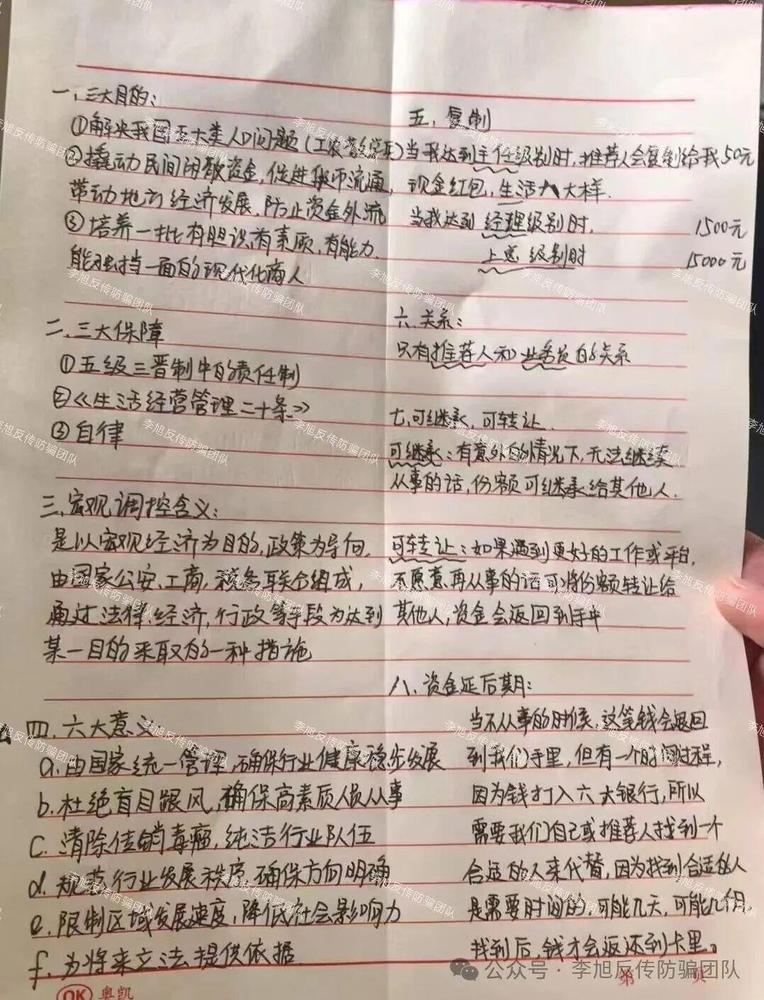 一、三大目的：
①解决我国五大类人口问题（工农
②撬动民间闲散资金，促进货币流通，
带动地方经济发展，防止资金外流
③培养一批有胆识，有素质，有能力
能独挡一面的现代化商人
二、三大保障
①五级三晋制中的责任制
②《生活经营管理二十条》
③自律
三、宏观调控含义：
是以宏观经济为目的，政策为导向，
由国家公安、工商，税务联合组成，
通过法律、经济，行政等手段为达到
某一目的采取的一种措施
四、六大意义
a. 由国家统一管理，确保行业健康稳步发展
b. 杜绝盲目跟风，确保高素质人员从事
c. 清除传销毒瘤，纯洁行业队伍
d. 规范行业发展秩序，确保方向明确
e. 限制区域发展速度，降低社会影响力
f. 为将来立法提供依据
五、复制
当我达到主任级别时，推荐人会复制给我50元
现金红包，生活大样.
当我达到经理级别时. 1500元
上总级别时 15000元
六、关系：
只有推荐人和业务员的关系
七、可继承，可转让.
可继承：有意外的情况下，无法继续
从事的话，份额可继承给其他人.
可转让：如果遇到更好的工作或平台，
不愿意再从事的话可将份额转让给
其他人，资金会返回到手中
八、资金延后期：
当不从事的时候，这笔钱会退回
到我们手里，但有一个时间过程，
因为钱打入六大银行，所以
需要我们自己或推荐人找到一个
合适的人来代替，因为找到合适的人
是需要时间的，可能几天，可能几个月，
找到后，钱才会返还到卡里。
第 页
OK 奥凯
公众号·李旭反传防骗团队
李旭反传防骗团队